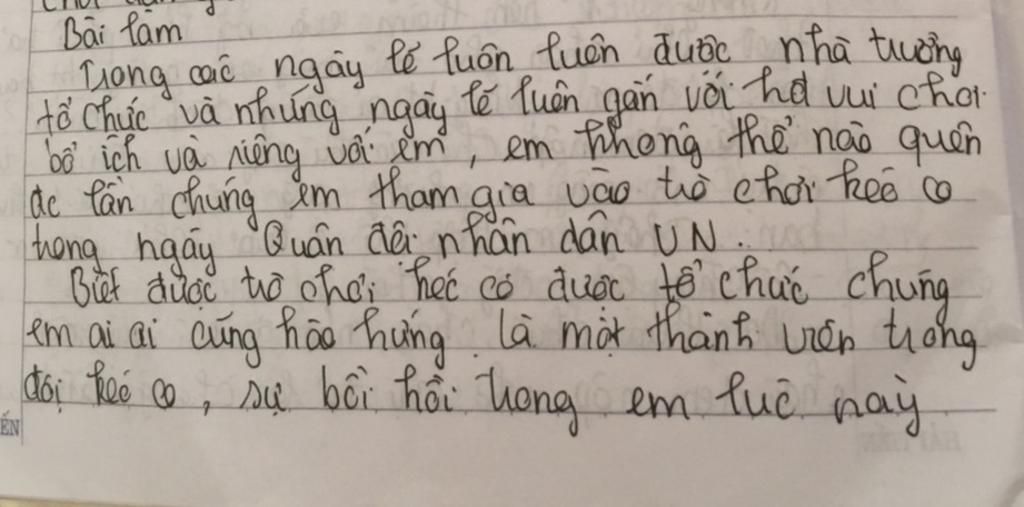 Bài làm
Trong các ngày lễ luôn luôn được nhà trường
tổ chức và những ngày lễ luôn gắn với hđ vui chơi
bổ ích và riêng với em, em không thể nào quên
đc lần chúng em tham gia vào trò chơi kéo co
trong ngày Quân đội nhân dân VN.
Biết được trò chơi kéo có được tổ chức chúng
em ai ai cũng hào hứng. Là một thành viên trong
đội kéo co, sự bồi hồi trong em lúc này
ẾN